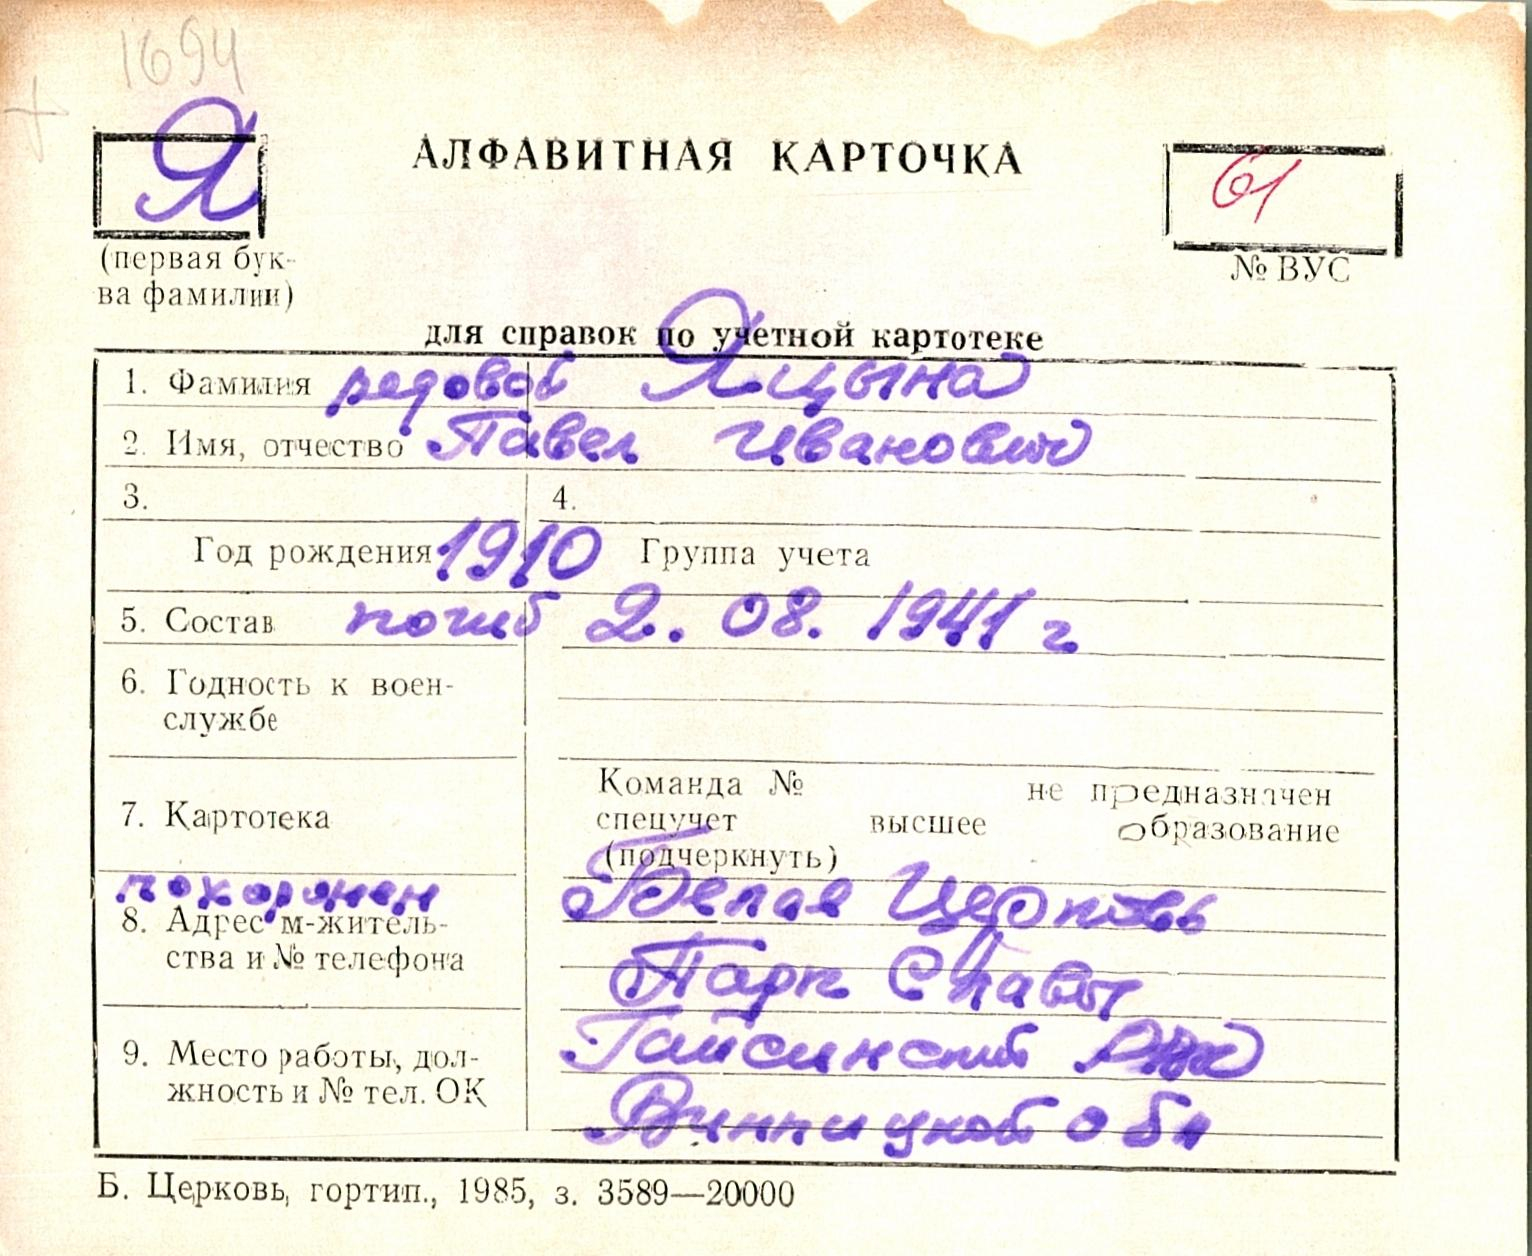 1694
Я
АЛФАВИТНАЯ КАРТОЧКА
61
(первая бук-
ва фамилии)
№ ВУС
для справок по учетной картотеке
1. Фамилия редовой Яцына
2. Имя, отчество Павел Иванович
3. 4.
Год рождения 1910 Группа учета
5. Состав погиб 2. 08. 1941 г
6. Годность к воен-
службе
Команда № не предназначен
7. Картотека спецучет высшее образование
(подчеркнуть)
похоронен Белая Церковь
8. Адрес м-житель-
ства и № телефона Парк Славы
9. Место работы, дол- Гайсинский РВК
жность и № тел. ОК Винницкой обл
Б. Церковь, гортип., 1985, з. 3589—20000